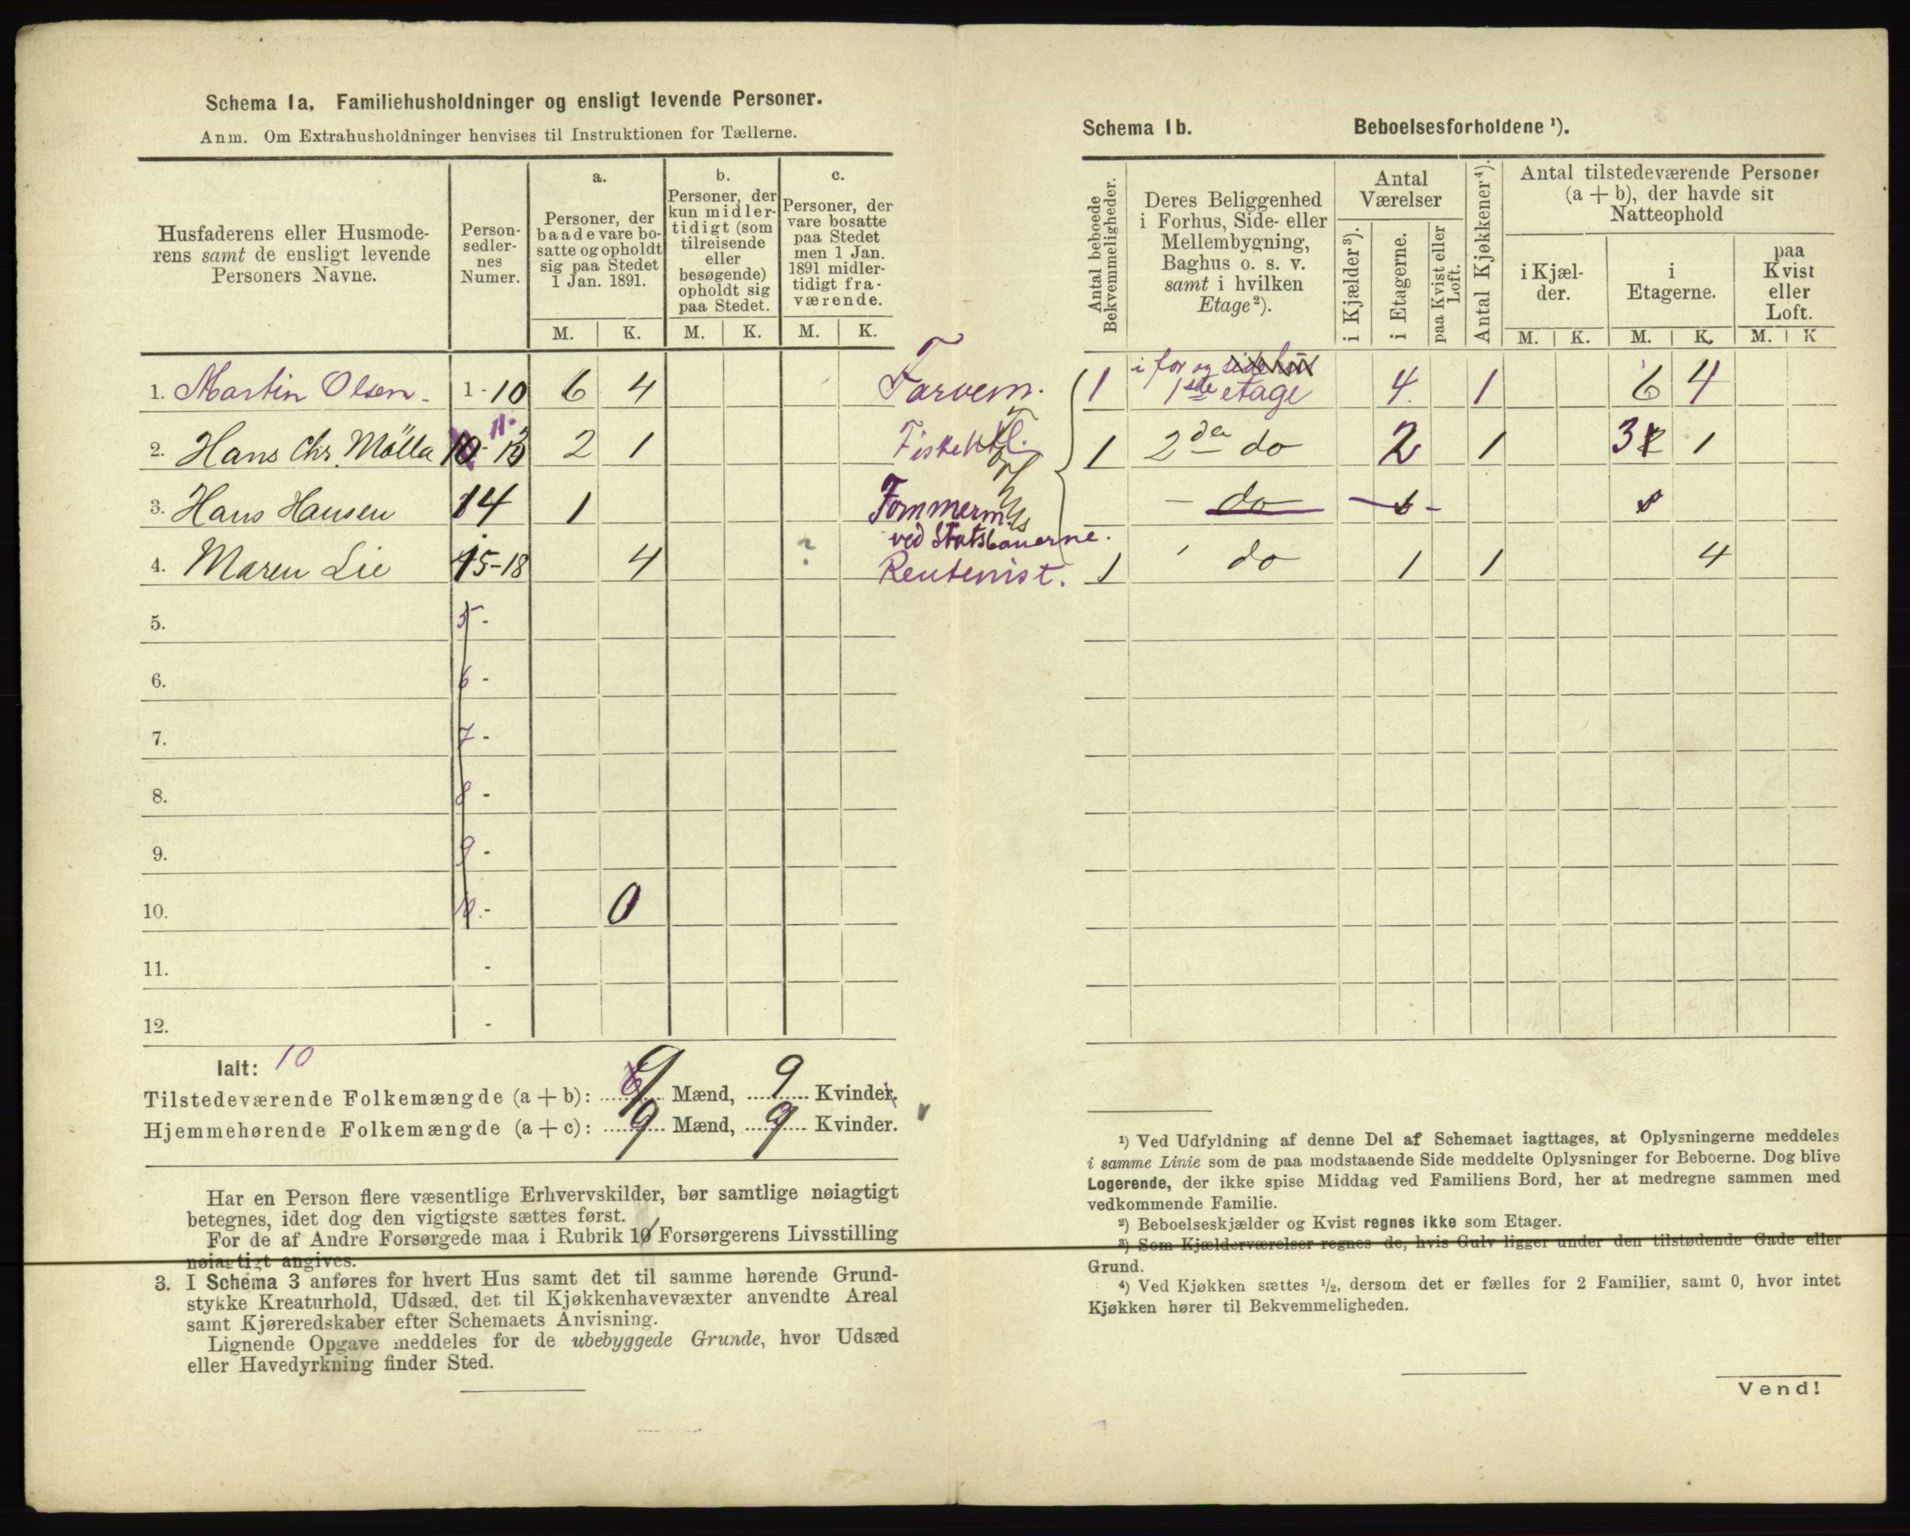 Schema 1a. Familiehusholdninger og ensligt levende Personer.
Anm. Om Extrahusholdninger henvises til Instruktionen for Tællerne.
Husfaderens eller Husmode-
rens samt de ensligt levende
Personers Navne.
Person-
sedler-
nes
Numer.
a.
Personer, der
baade vare bo-
satte og opholdt
sig paa Stedet
1 Jan. 1891.
b.
Personer, der
kun midler-
tidigt (som
tilreisende
eller
besøgende)
opholdt sig
paa Stedet.
c.
Personer, der
vare bosatte
paa Stedet
men 1 Jan.
1891 midler-
tidigt fra-
værende.
M. K. M. K. M. K.
1. Martin Olsen. 1-10 6 4 Farvem.
2. Hans Chr. Mölla 11- 13 2 1
3. Hans Hansen 14 1 Tømmerm.
ved Statsbanerne.
4. Maren Lie 15-18 4 ? Rentenist.
5. 5-
6. 6-
7. 7-
8. 8-
9. 9-
10. 10.- 0
11. -
12. -
Ialt: 10
Tilstedeværende Folkemængde (a + b): 9 Mænd, 9 Kvinder.
Hjemmehørende Folkemængde (a + c): 9 Mænd, 9 Kvinder.
Har en Person flere væsentlige Erhvervskilder, bør samtlige nøiagtigt
betegnes, idet dog den vigtigste sættes først.
For de af Andre Forsørgede maa i Rubrik 10 Forsørgerens Livsstilling
nøiagtigt angives.
3. I Schema 3 anføres for hvert Hus samt det til samme hørende Grund-
stykke Kreaturhold, Udsæd, det til Kjøkkenhavevæxter anvendte Areal
samt Kjøreredskaber efter Schemaets Anvisning.
Lignende Opgave meddeles for de ubebyggede Grunde, hvor Udsæd
eller Havedyrkning finder Sted.
Schema 1b. Beboelsesforholdene ¹).
Antal beboede
Bekvemmeligheder.
Deres Beliggenhed
i Forhus, Side- eller
Mellembygning,
Baghus o. s. v.
samt i hvilken
Etage²).
Antal
Værelser
i Kjælder³).
i Etagerne.
paa Kvist eller
Loft.
Antal Kjøkkener⁴).
Antal tilstedeværende Personer
(a + b), der havde sit
Natteophold
i Kjæl-
der.
i
Etagerne.
paa
Kvist
eller
Loft.
M. K. M. K. M. K
i for og sidehus
1 1ste etage 4 1 6 4
1 2den do 2 1 3 1
- do -
1 ' do 1 1 4
¹) Ved Udfyldning af denne Del af Schemaet iagttages, at Oplysningerne meddeles
i samme Linie som de paa modstaaende Side meddelte Oplysninger for Beboerne. Dog blive
Logerende, der ikke spise Middag ved Familiens Bord, her at medregne sammen med
vedkommende Familie.
²) Beboelseskjælder og Kvist regnes ikke som Etager.
³) Som Kjælderværelser regnes de, hvis Gulv ligger under den tilstødende Gade eller
Grund.
⁴) Ved Kjøkken sættes ½, dersom det er fælles for 2 Familier, samt 0, hvor intet
Kjøkken hører til Bekvemmeligheden.
Vend!